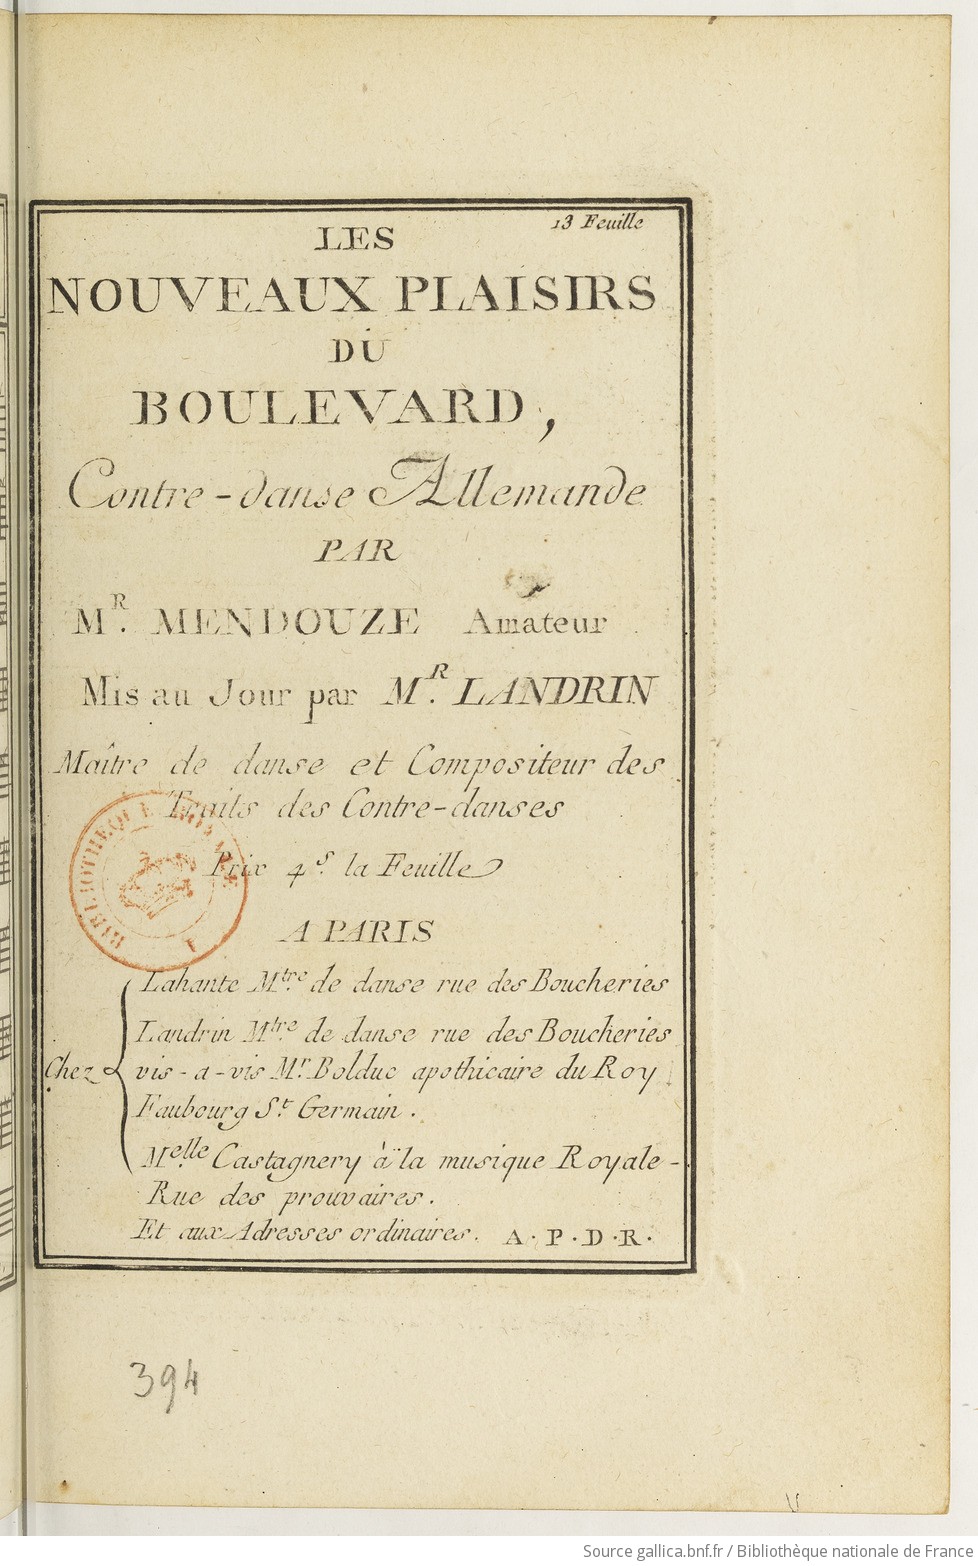 13 Feuille
LES
NOUVEAUX PLAISIRS
DU
BOULEVARD,
Contre-danse Allemande
PAR
M.R MENDOUZE Amateur
Mis au Jour par M.R LANDRIN
Maître de danse et Compositeur des
Traits des Contre-danses
Prix 4.s la Feuille
A PARIS
Chez
Lahante M.tre de danse rue des Boucheries
Landrin M.tre de danse rue des Boucheries
vis-a-vis M.r Bolduc apothicaire du Roy
Faubourg S.t Germain.
M.elle Castagnery à la musique Royale-
Rue des prouvaires.
Et aux Adresses ordinaires. A.P.D.R.
394
Source gallica.bnf.fr / Bibliothèque nationale de France